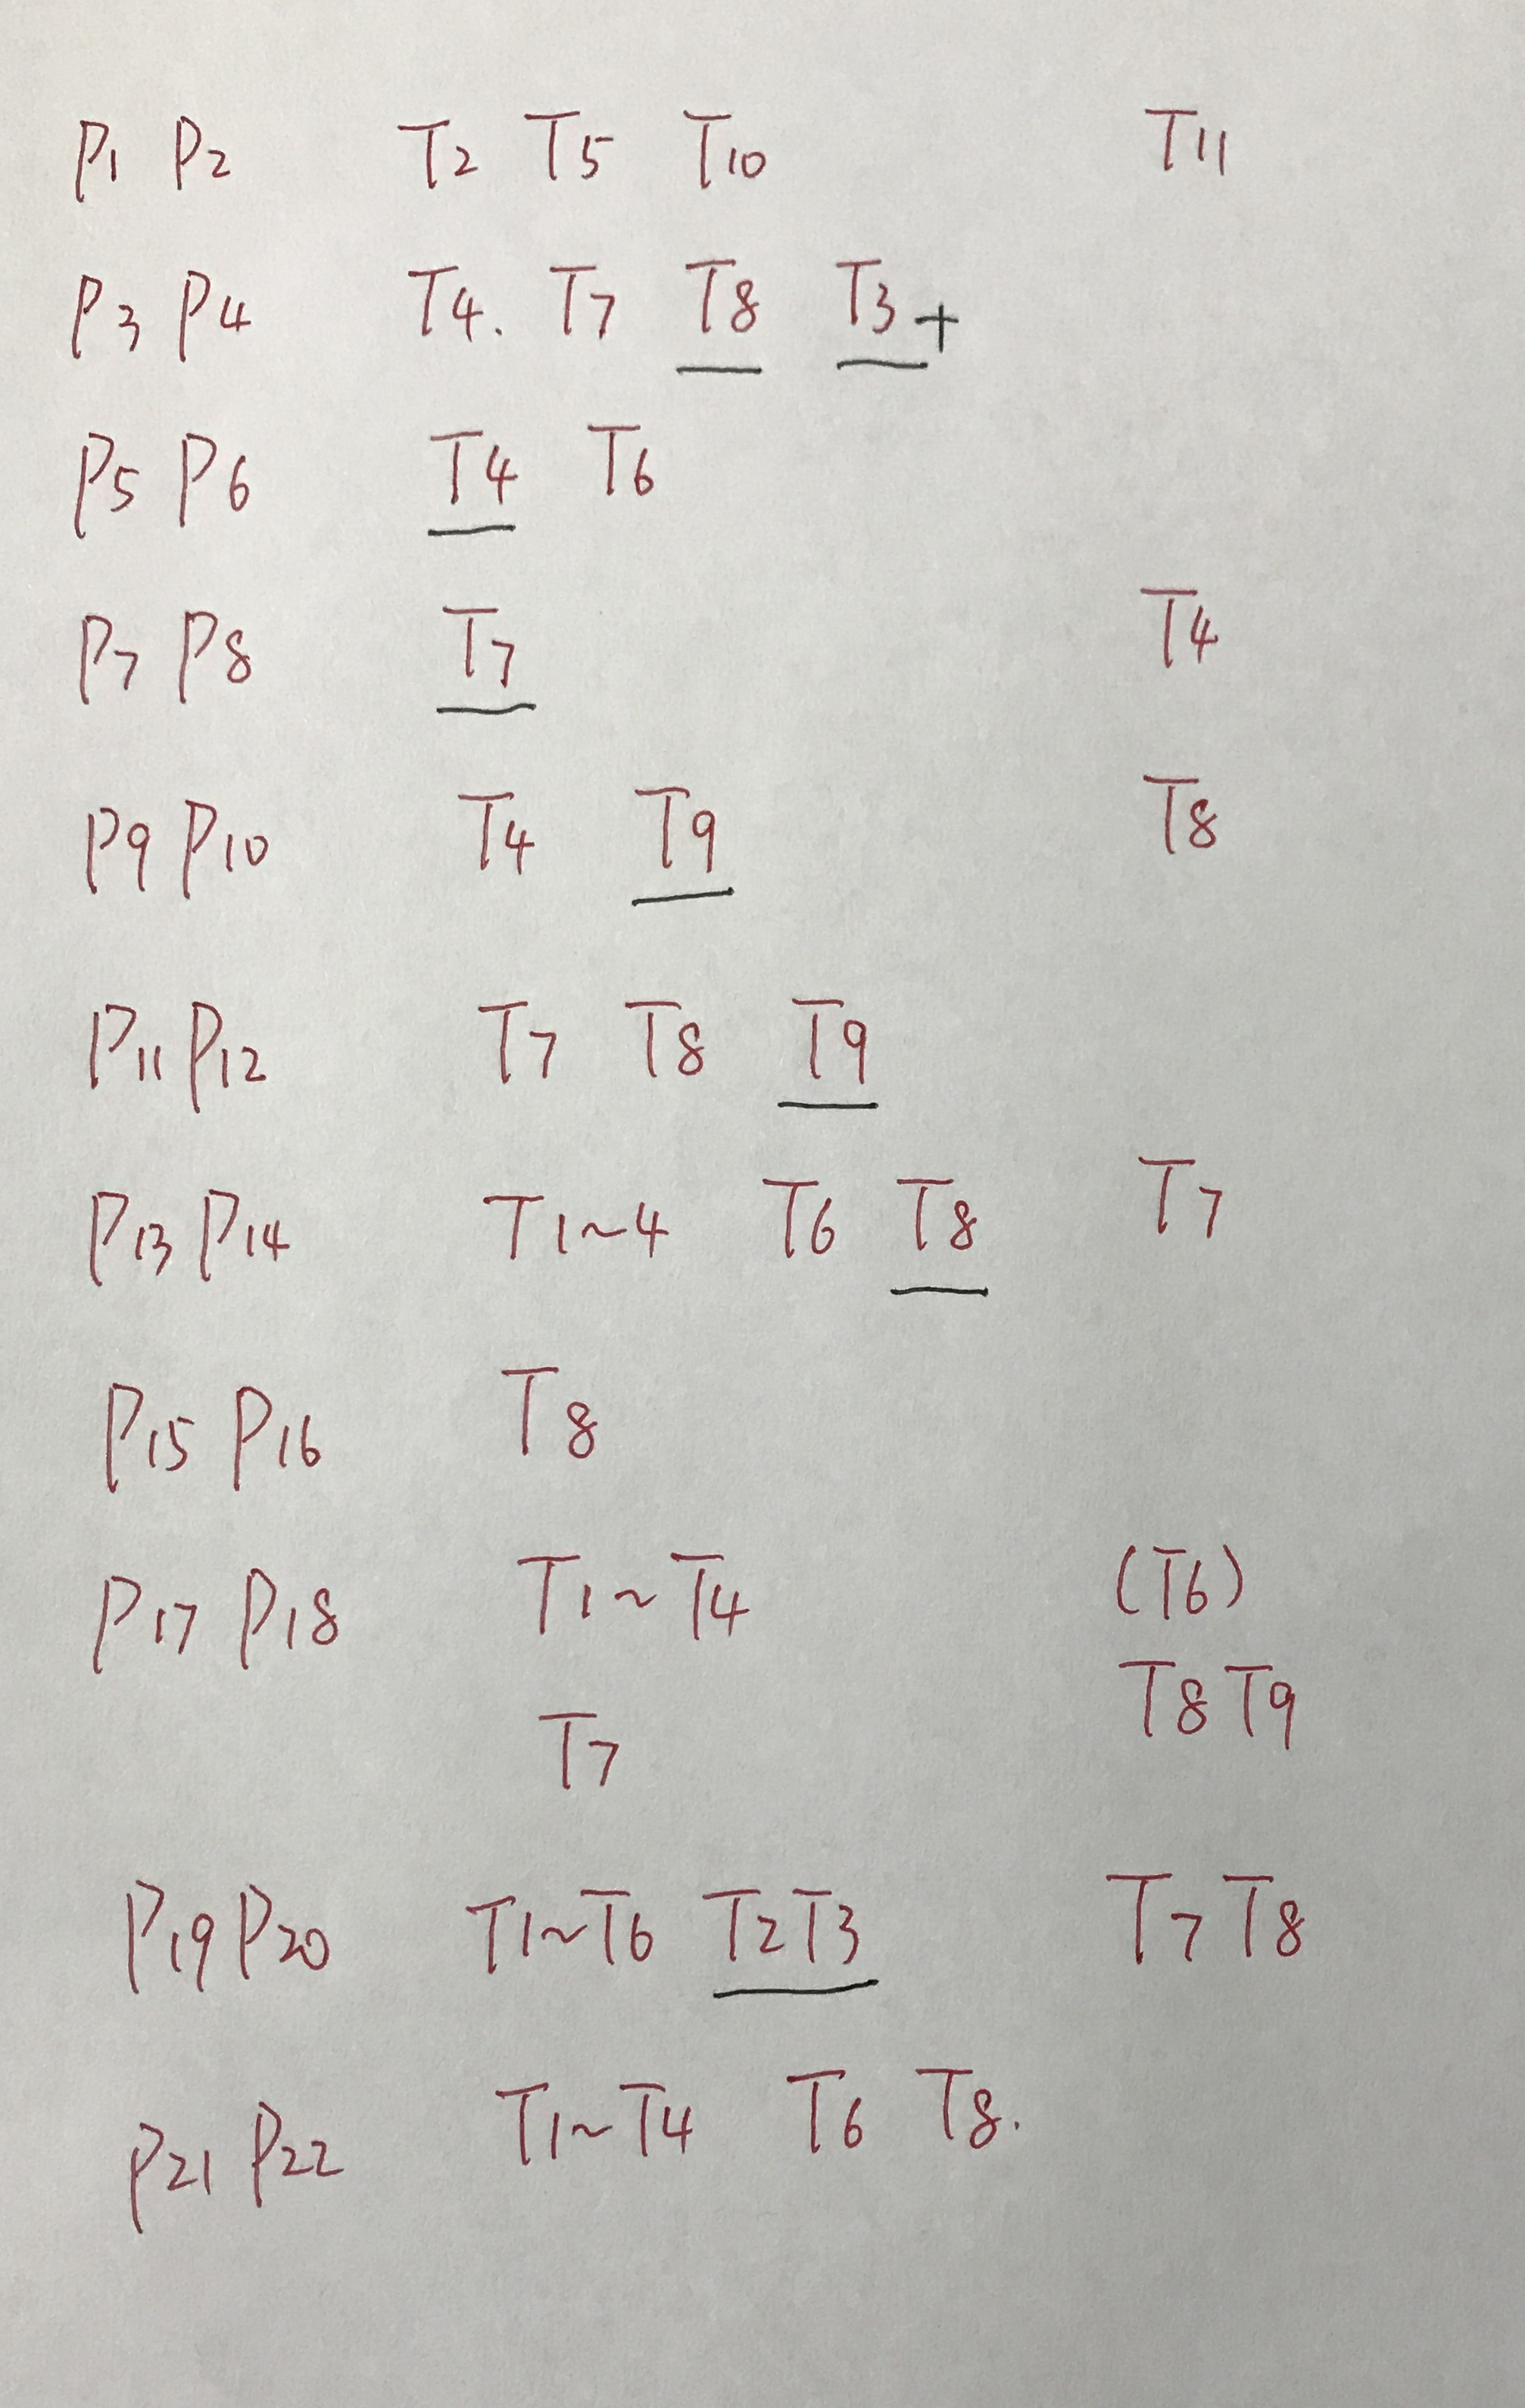 P1 P2 T2 T5 T10 T11
P3 P4 T4. T7 T8 T3+
P5 P6 T4 T6
P7 P8 T7 T4
P9 P10 T4 T9 T8
P11 P12 T7 T8 T9
P13 P14 T1~4 T6 T8 T7
P15 P16 T8
P17 P18 T1~T4 (T6)
T7 T8 T9
P19 P20 T1~T6 T2 T3 T7 T8
P21 P22 T1~T4 T6 T8.